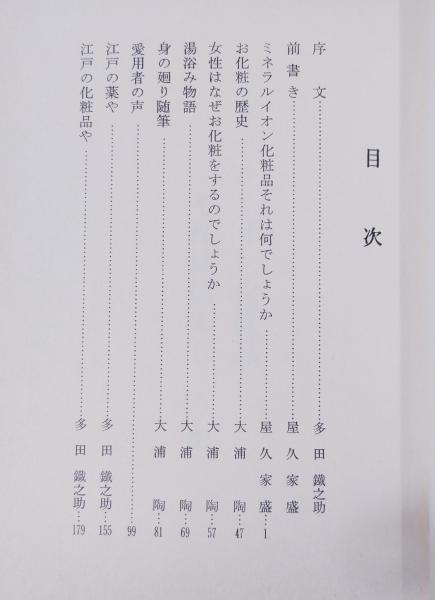 目次
序文……多田鐵之助
前書き……屋久家盛
ミネラルイオン化粧品それは何でしょうか……屋久家盛…1
お化粧の歴史……大浦陶…47
女性はなぜお化粧をするのでしょうか……大浦陶…57
湯浴み物語……大浦陶…69
身の廻り随筆……大浦陶…81
愛用者の声……99
江戸の薬や……多田鐵之助…155
江戸の化粧品や……多田鐵之助…179